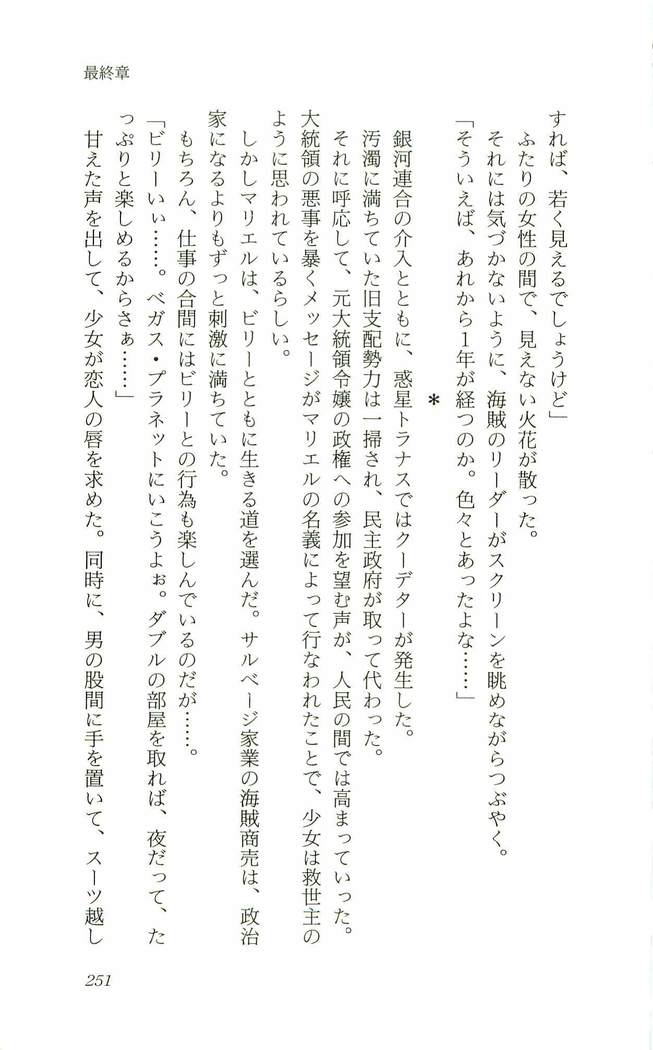 最終章
すれば、若く見えるでしょうけど」
　ふたりの女性の間で、見えない火花が散った。
　それには気づかないように、海賊のリーダーがスクリーンを眺めながらつぶやく。
「そういえば、あれから１年が経つのか。色々とあったよな……」
＊
　銀河連合の介入とともに、惑星トラナスではクーデターが発生した。
　汚濁に満ちていた旧支配勢力は一掃され、民主政府が取って代わった。
　それに呼応して、元大統領令嬢の政権への参加を望む声が、人民の間では高まっていった。
大統領の悪事を暴くメッセージがマリエルの名義によって行なわれたことで、少女は救世主の
ように思われているらしい。
　しかしマリエルは、ビリーとともに生きる道を選んだ。サルベージ家業の海賊商売は、政治
家になるよりもずっと刺激に満ちていた。
　もちろん、仕事の合間にはビリーとの行為も楽しんでいるのだが……。
「ビリーいぃ……。ベガス・プラネットにいこうよぉ。ダブルの部屋を取れば、夜だって、た
っぷりと楽しめるからさぁ……」
　甘えた声を出して、少女が恋人の唇を求めた。同時に、男の股間に手を置いて、スーツ越し
251